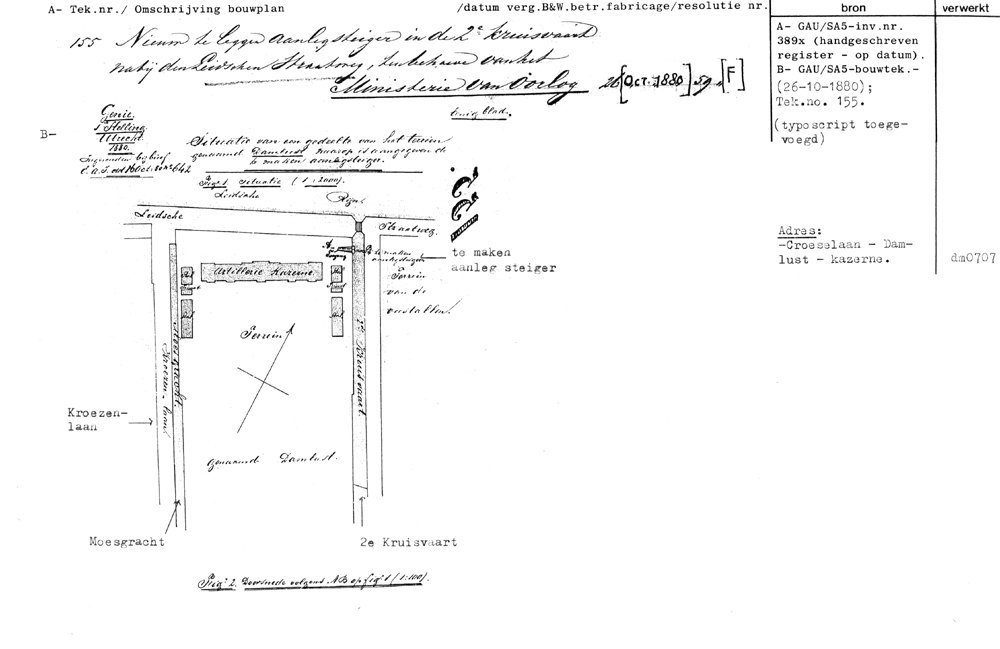 A- Tek.nr./ Omschrijving bouwplan /datum verg.B&W.betr.fabricage/resolutie nr. bron verwerkt
155 Nieuw te leggen aanlegsteiger in de 2e kruisvaart
nabij den Leidschen Straatweg, ten behoeve van het
Ministerie van Oorlog 26 [Oct. 1880] 59 [F]
A- GAU/SA5-inv.nr.
389x (handgeschreven
register - op datum).
B- GAU/SA5-bouwtek.-
(26-10-1880);
Tek.no. 155.
(typoscript toege-
voegd)
B-
Genie.
Stelling
Utrecht
1880.
Situatie van een gedeelte van het terrein
genaamd Damlust waarop is aangegeven de
te maken aanlegsteiger.
Fig. 1 Situatie (1:2000).
155.
Leidsche Rijn
Leidsche Straatweg.
A B
te maken
aanlegsteiger
te maken
aanleg steiger
Artillerie Kazerne.
Terrein
van de
Terrein
2e Kruisvaart.
Moesgracht.
Kroezen-laan
Kroezen-
laan
genaamd Damlust.
Moesgracht
2e Kruisvaart
Adres:
-Croeselaan - Dam-
lust - kazerne.
dm0707
Fig. 2. Doorsnede volgens AB op fig. 1 (1:100).